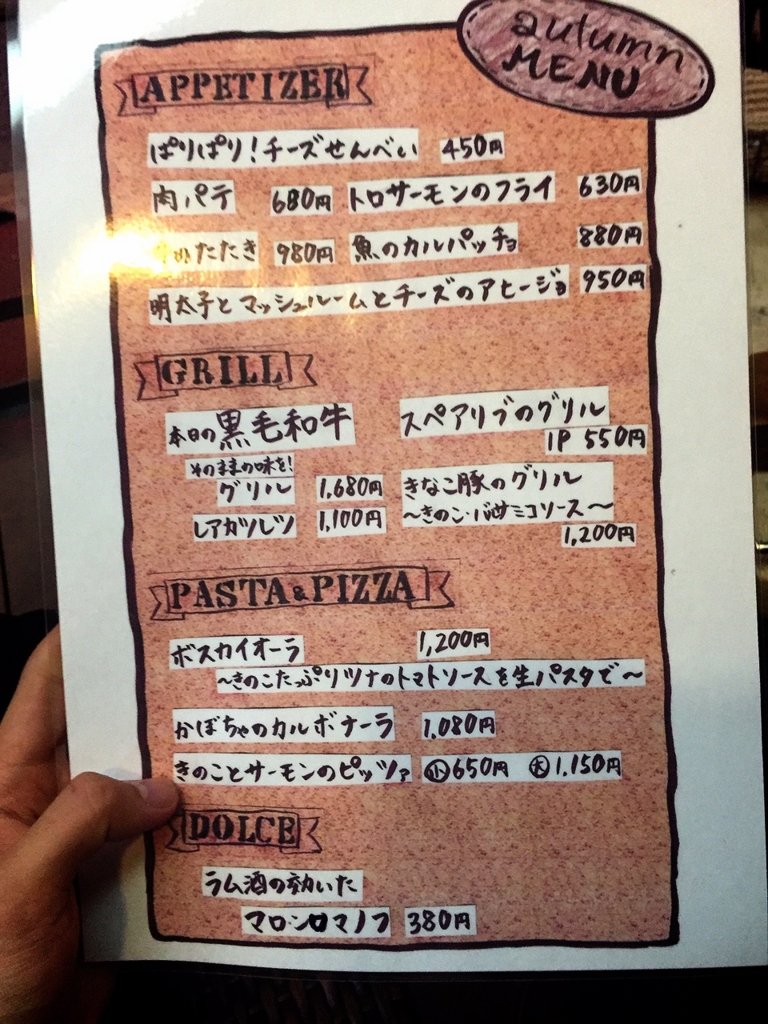 autumn
MENU
APPETIZER
ぱりぱり!チーズせんべい 450円
肉パテ 680円 トロサーモンのフライ 630円
たたき 980円 魚のカルパッチョ 880円
明太子とマッシュルームとチーズのアヒージョ 950円
GRILL
本日の黒毛和牛
そのままの味を!
グリル 1,680円
レアカツレツ 1,100円
スペアリブのグリル
1P 550円
きなこ豚のグリル
~きのこ・バルサミコソース~
1,200円
PASTA & PIZZA
ボスカイオーラ 1,200円
~きのこたっぷりツナのトマトソースを生パスタで~
かぼちゃのカルボナーラ 1,080円
きのことサーモンのピッツァ 小650円 大1,150円
DOLCE
ラム酒の効いた
マロンロマノフ 380円